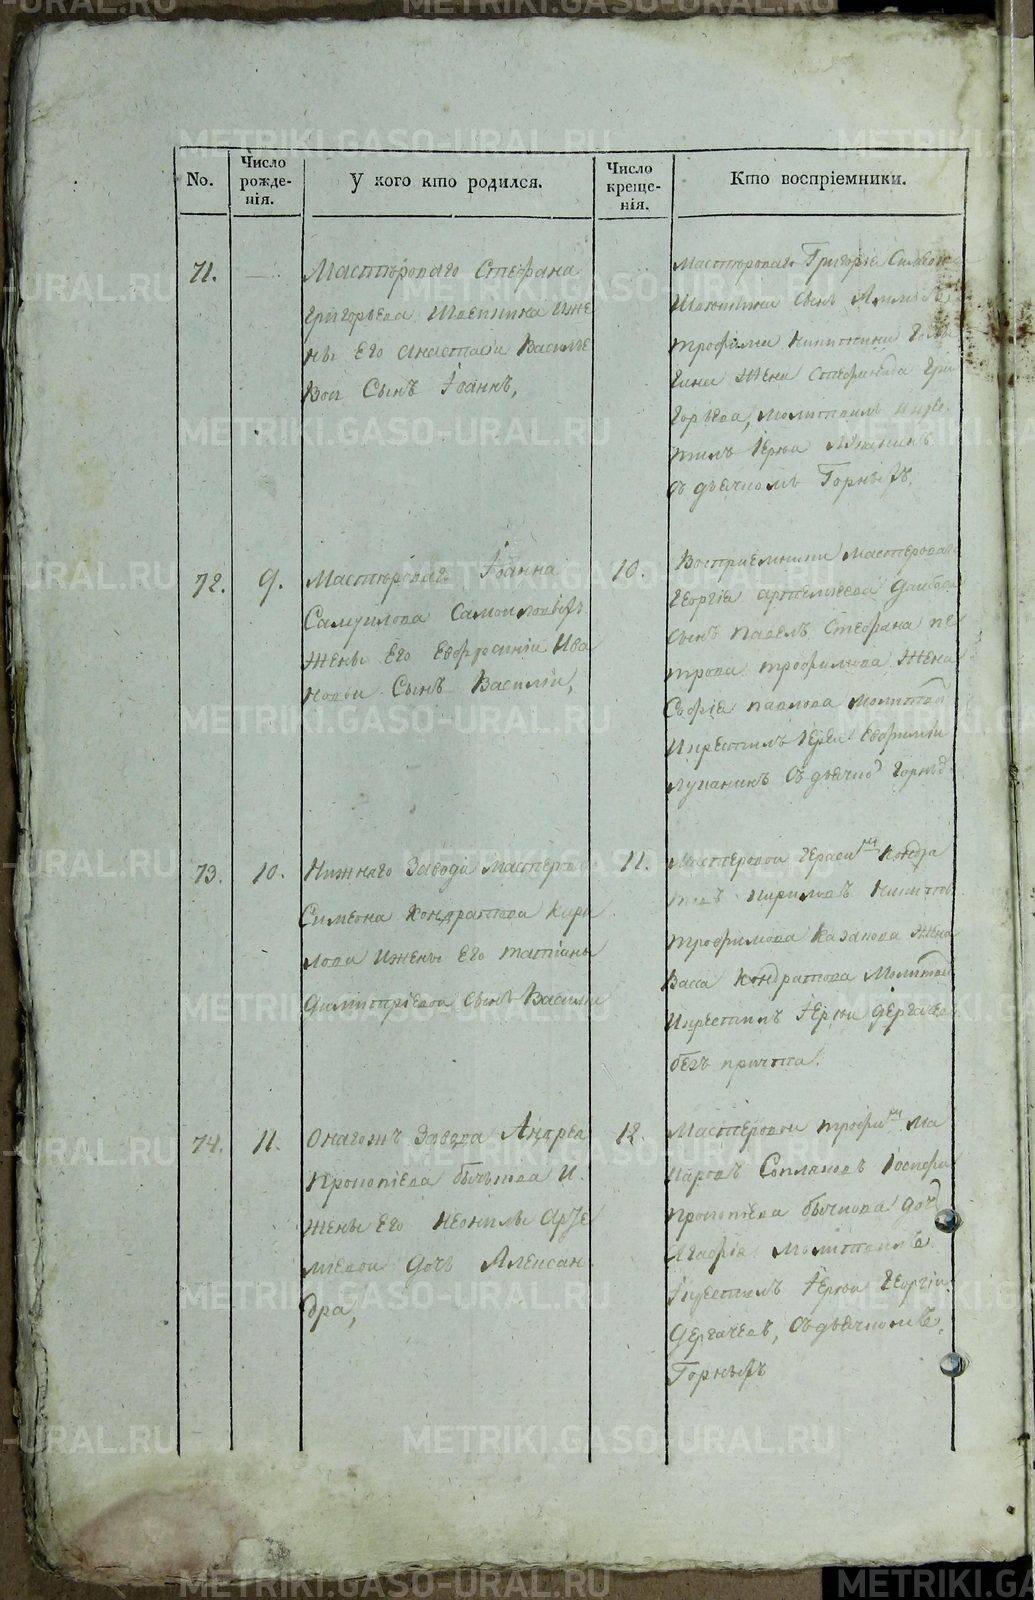 No.
Число рожде-
нія.
У кого кто родился.
Число креще-
нія.
Кто воспріемники.
71.
Мастероваго Стефана
Григорьева
Его Анастасіи Василье
вой Сынъ Іоаннъ,
Мастероваго Григорія
сынъ
трофима Никитина
жена Стефанида Гри
горьева, молитвилъ и кре
тилъ Іерей Лупанинъ
съ дьячкомъ Горныхъ.
72.
9.
Мастероваго Іоанна
Самуилова Самойловыхъ
жены Его Евфросиніи Ива
новой Сынъ Василій,
10.
Воспріемники мастероваго
Георгія
сынъ Павелъ Стефана пе
трова трофимова Жена
Софія павлова молитвил
и крестилъ Іерей Евфимій
Лупанинъ съ дьячко Горных
73.
10.
Нижняго Завода Мастеров
Симеона Кондратова Кири
лова и жены Его татіаны
Димитріевой сынъ Василій
11.
Мастеровой Гераси м Кондра
товъ Кириловъ Никиты
трофимова Казакова жена
Васса Кондратова Молитвил
и крестилъ Іерей Дергачев
безъ причта.
74.
11.
Онагожъ Завода Андрея
Прокопіева бычкова и
жены Его Неонилы Арте
міевой дочь Александ
дра,
12.
Мастеровой трофи м Ма
каровъ
Прокопіева бычкова доч
Агафія молитвилъ
и крестилъ Іерей Георгій
Дергачевъ, съ дьячкомъ
Горныхъ
METRIKI.GASO-URAL.RU